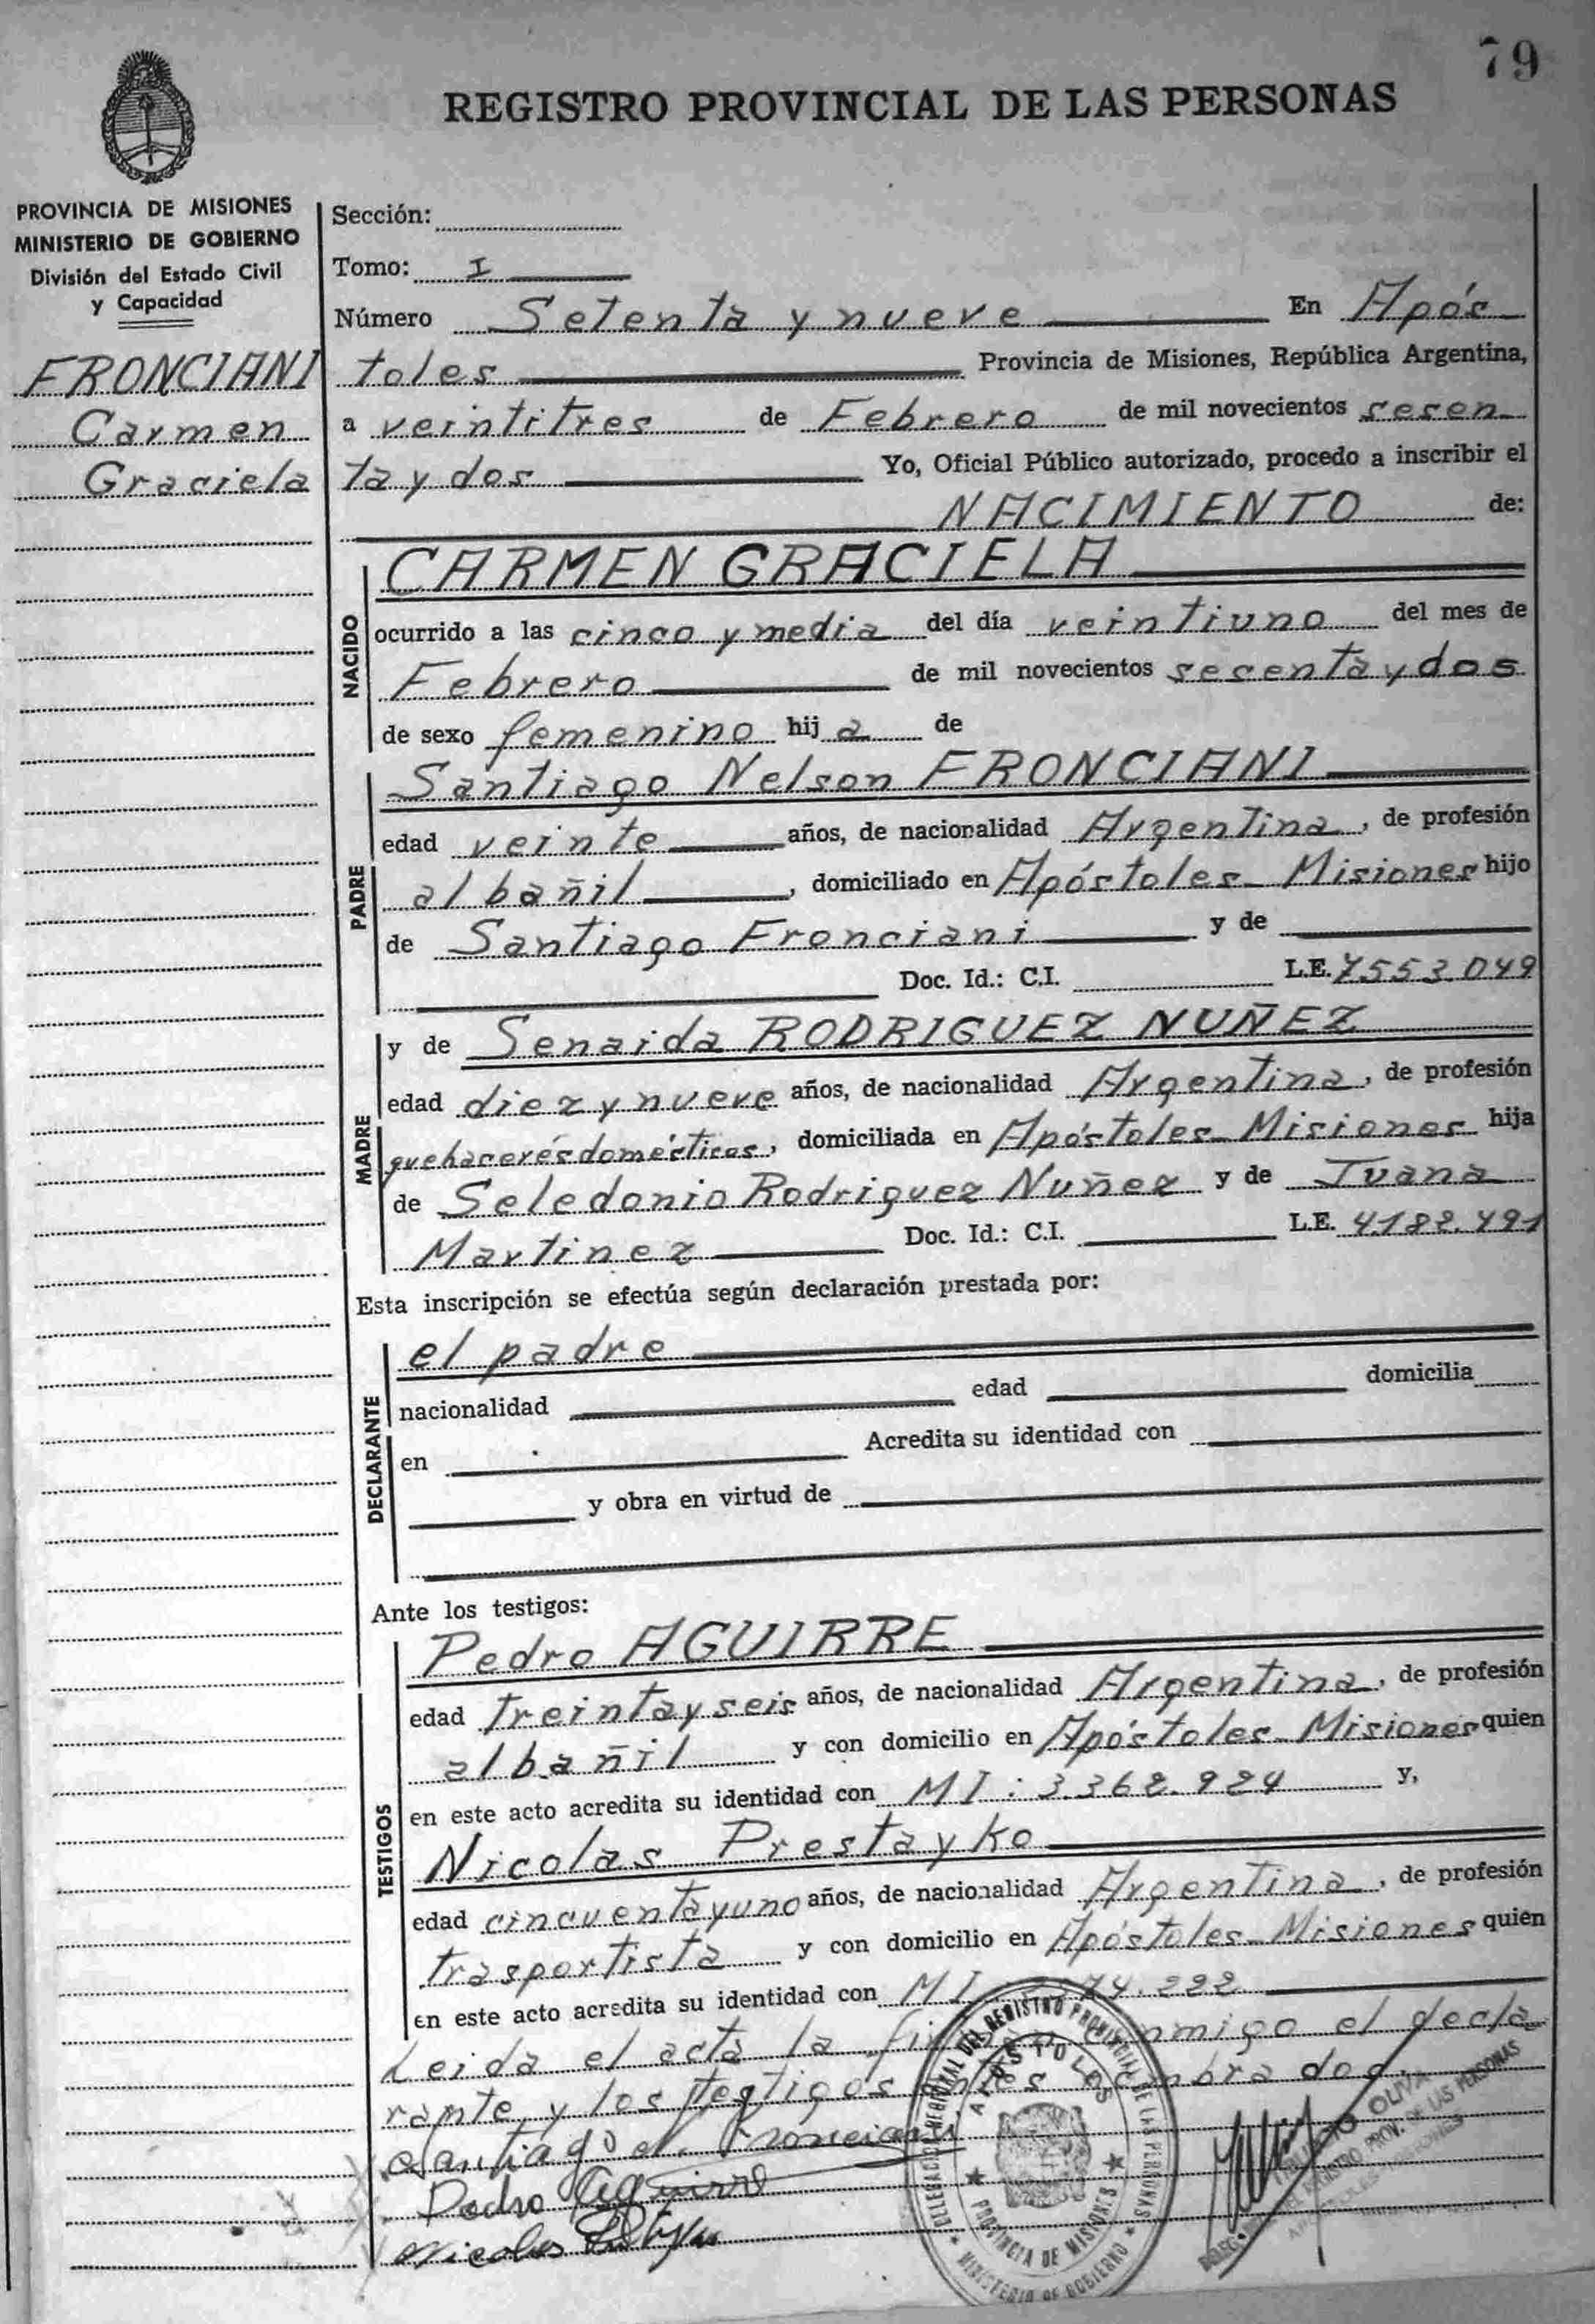 79
REGISTRO PROVINCIAL DE LAS PERSONAS
PROVINCIA DE MISIONES
MINISTERIO DE GOBIERNO
División del Estado Civil
y Capacidad
FRONCIANI
Carmen
Graciela
Sección:
Tomo: I
Número Setenta y nueve En Após
toles Provincia de Misiones, República Argentina,
a veintitres de Febrero de mil novecientos sesen
ta y dos Yo, Oficial Público autorizado, procedo a inscribir el
NACIMIENTO de:
NACIDO
CARMEN GRACIELA
ocurrido a las cinco y media del día veintiuno del mes de
Febrero de mil novecientos sesenta y dos
de sexo femenino hij a de
PADRE
Santiago Nelson FRONCIANI
edad veinte años, de nacionalidad Argentina, de profesión
albañil, domiciliado en Apóstoles - Misiones hijo
de Santiago Fronciani y de
Doc. Id.: C.I. L.E. 7553.049
MADRE
y de Senaida RODRIGUEZ NUÑEZ
edad diez y nueve años, de nacionalidad Argentina, de profesión
quehaceres domésticos, domiciliada en Apóstoles - Misiones hija
de Seledonio Rodriguez Nuñez y de Juana
Martinez Doc. Id.: C.I. L.E. 4.182.491
Esta inscripción se efectúa según declaración prestada por:
DECLARANTE
el padre
nacionalidad edad domicilia
en Acredita su identidad con
y obra en virtud de
Ante los testigos:
TESTIGOS
Pedro AGUIRRE
edad treinta y seis años, de nacionalidad Argentina, de profesión
albañil y con domicilio en Apóstoles - Misiones quien
en este acto acredita su identidad con MI: 3.362.924 y,
Nicolas Prestayko
edad cincuenta y uno años, de nacionalidad Argentina, de profesión
trasportista y con domicilio en Apóstoles - Misiones quien
en este acto acredita su identidad con MI 74.222
Leida el acta la conmigo el decla
rante y los testigos antes nombrados.
Santiago N. Fronciani
Pedro Aguirre
Nicolas
DELEGACION DEL REGISTRO PROVINCIAL DE LAS PERSONAS
APOSTOLES
PROVINCIA DE MISIONES
MINISTERIO DE GOBIERNO
OLIVA
REGISTRO PROV. DE LAS PERSONAS